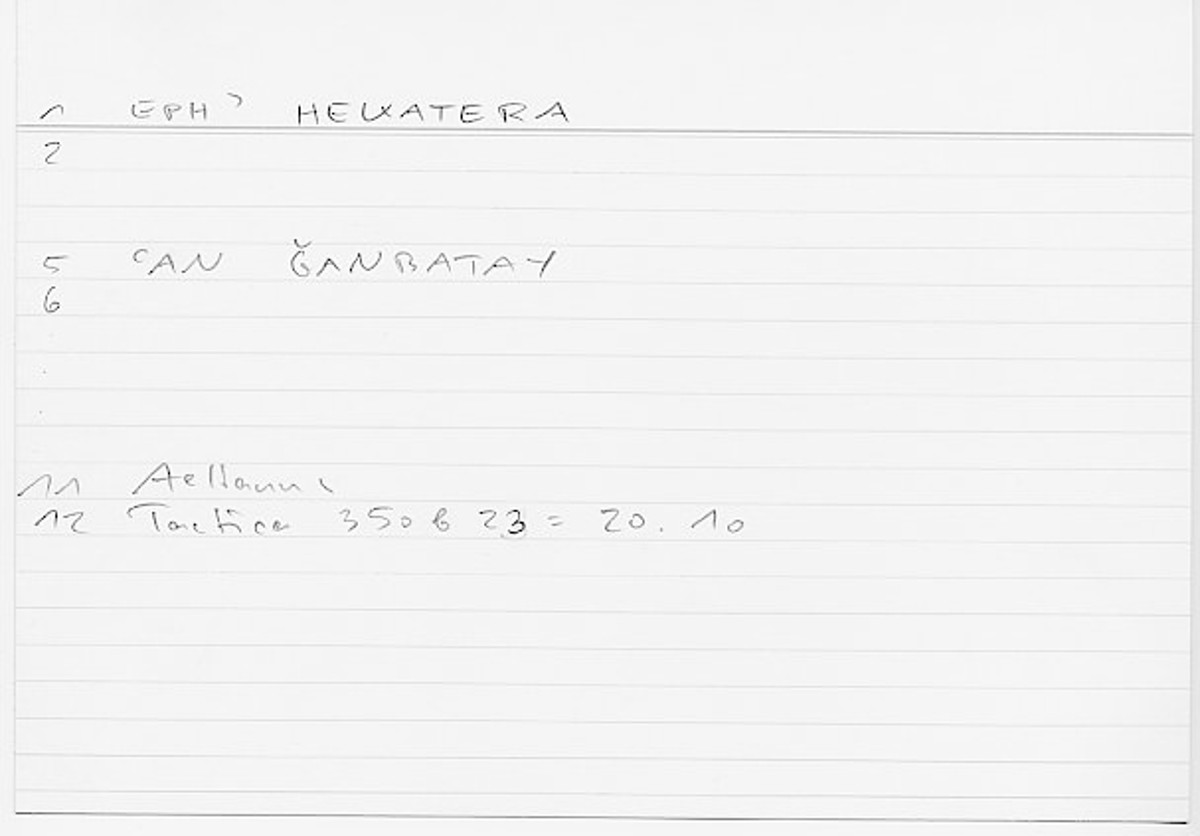 1 EPH ʾ HEKATERA
2
5 ʿAN ǦANBATAY
6
.
.
11 Aeliani
12 Tactica 350 b 23 = 20. 10